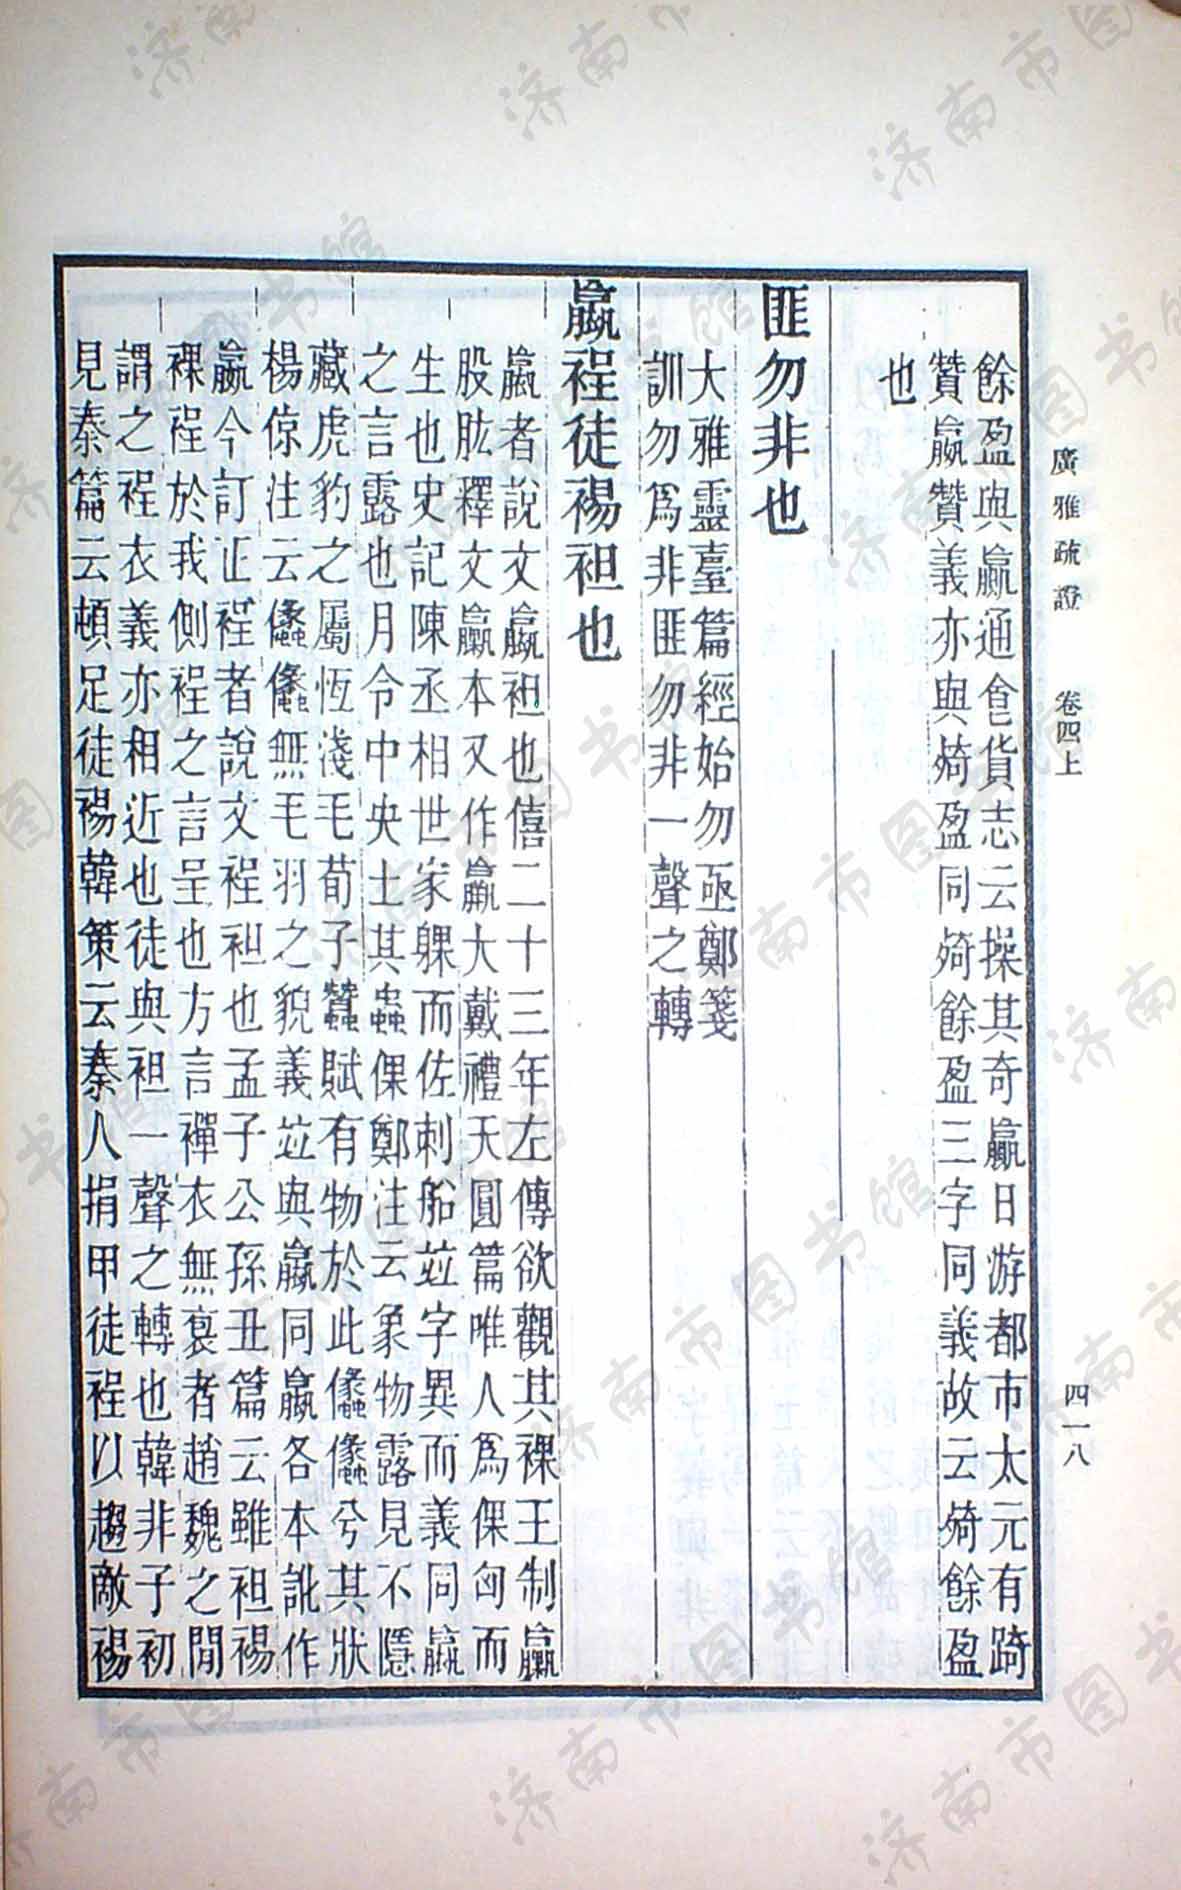 廣雅疏證　卷四上　四一八
餘盈與贏通食貨志云操其奇贏日游都市太元有踦
贊贏贊義亦與䭲盈同䭲餘盈三字同義故云䭲餘盈
也
匪勿非也
大雅靈臺篇經始勿亟鄭箋
訓勿爲非匪勿非一聲之轉
臝裎徒裼袒也
臝者說文臝袒也僖二十三年左傳欲觀其裸王制臝
股肱釋文臝本又作臝大戴禮天圓篇唯人爲倮匈而
生也史記陳丞相世家躶而佐刺船竝字異而義同臝
之言露也月令中央土其蟲倮鄭注云象物露見不隱
藏虎豹之屬恆淺毛荀子蠶賦有物於此㒩㒩兮其狀
楊倞注云㒩㒩無毛羽之貌義竝與臝同臝各本訛作
贏今訂正裎者說文裎袒也孟子公孫丑篇云雖袒裼
裸裎於我側裎之言呈也方言襌衣無袌者趙魏之閒
謂之裎衣義亦相近也徒與袒一聲之轉也韓非子初
見秦篇云頓足徒裼韓策云秦人捐甲徒裎以趨敵裼